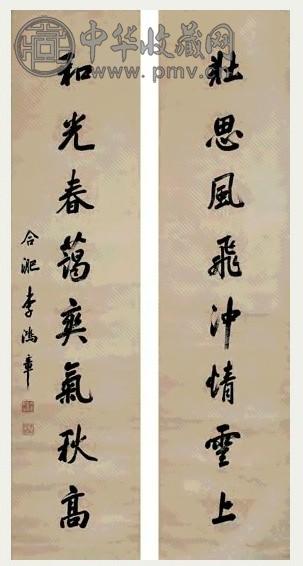 中华收藏网
www.pmv.cn
壯思風飛沖情雲上
和光春藹爽氣秋高
合淝李鴻章